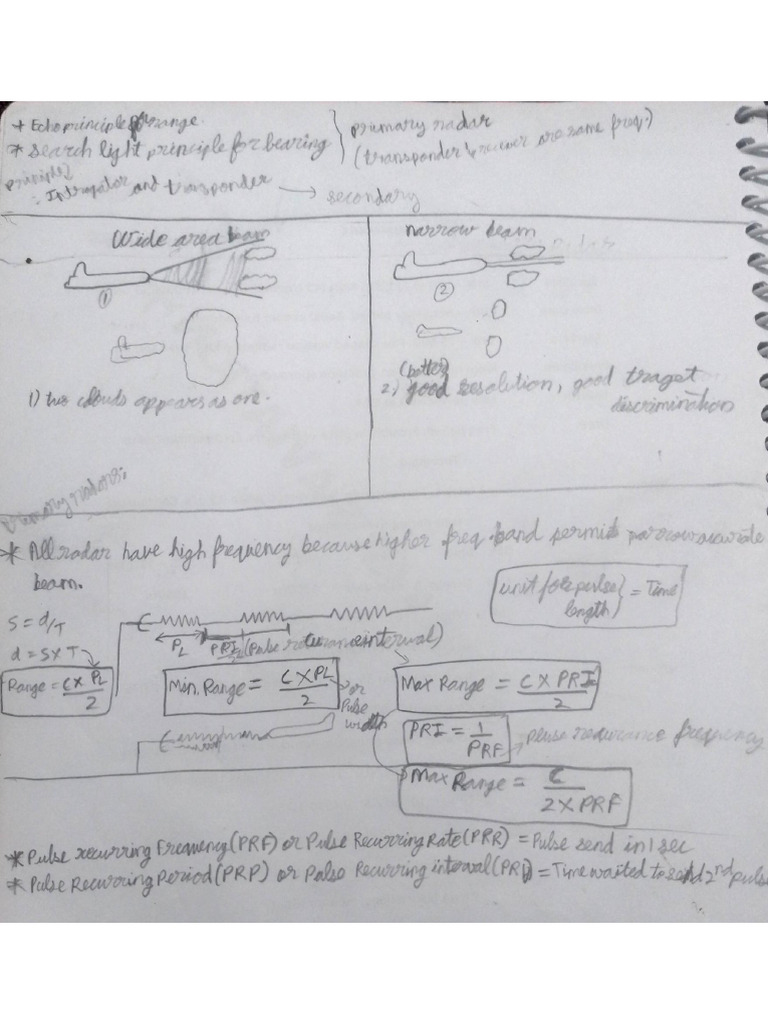 * Echo principle for range.
* Search light principle for bearing
primary radar
(transponder & reciver are same freq.)
principles
: Intropator and transponder → secondary
Wide area beam
①
1) two clouds appears as one.
narrow beam
②
(better)
2) good resolution, good traget
discrimination
Primary radars:
* All radar have high frequency because higher freq band permits narrow accurate
beam.
unit for pulse length = Time
S = d/T
d = S x T
Range = C x PL / 2
PL
PRI (Pulse recurance interval)
Min. Range = C X PL / 2
or Pulse width
Max Range = C X PRI / 2
PRI = 1 / PRF
pluse recurance frequency
Max Range = C / 2 X PRF
* Pulse recurring Frequency (PRF) or Pulse Recurring Rate (PRR) = Pulse send in 1 sec
* Pulse Recurring Period (PRP) or Pulse Recurring interval (PRI) = Time waited to send 2nd pulse